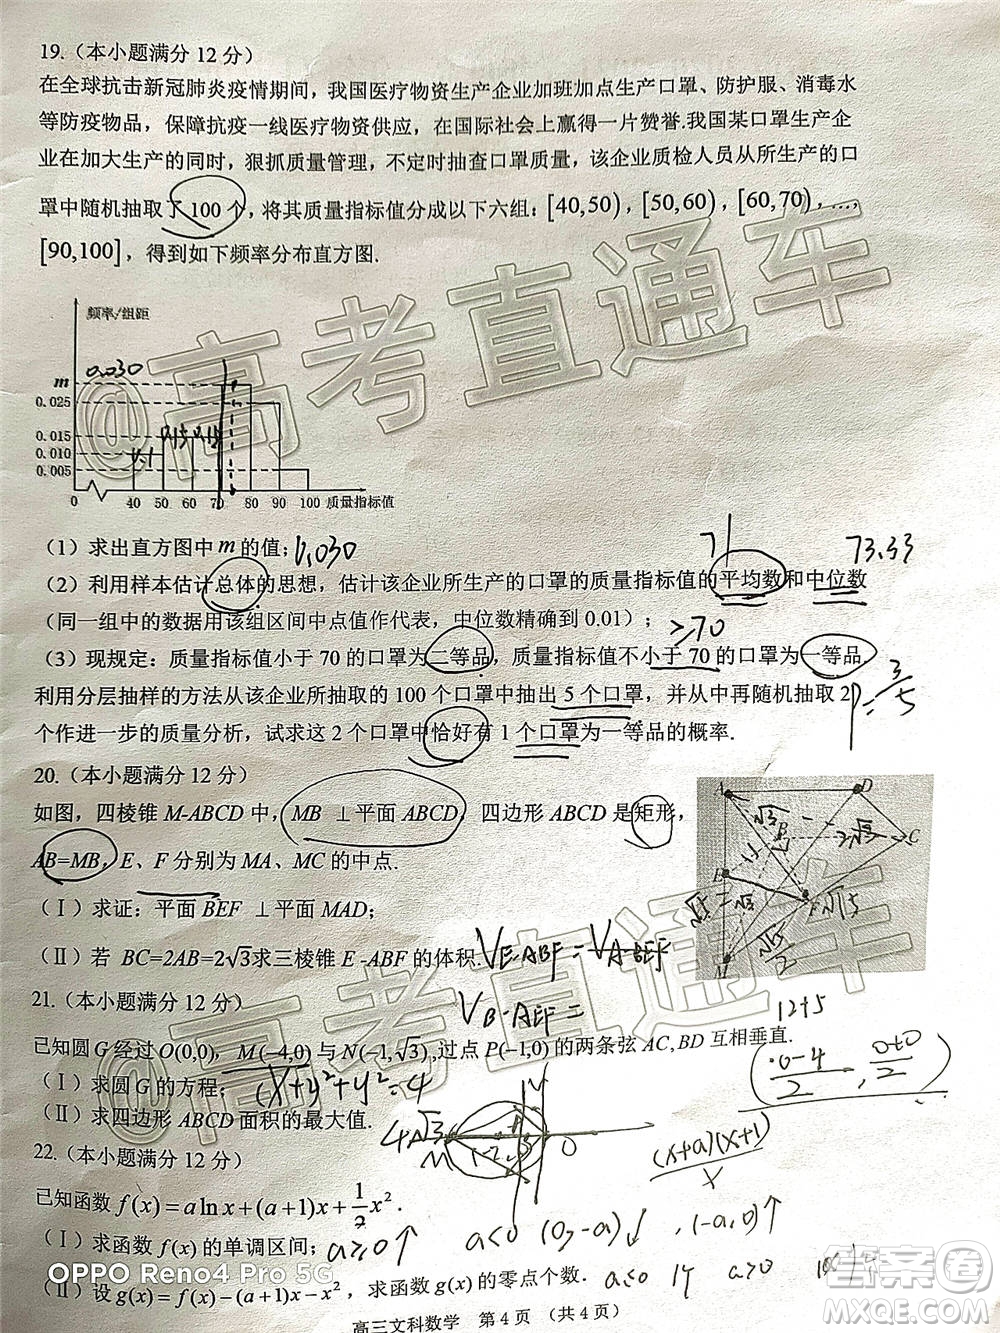 19.（本小题满分 12 分）
在全球抗击新冠肺炎疫情期间，我国医疗物资生产企业加班加点生产口罩、防护服、消毒水
等防疫物品，保障抗疫一线医疗物资供应，在国际社会上赢得一片赞誉.我国某口罩生产企
业在加大生产的同时，狠抓质量管理，不定时抽查口罩质量，该企业质检人员从所生产的口
罩中随机抽取了 100 个，将其质量指标值分成以下六组：[40,50)，[50,60)，[60,70)，...，
[90,100]，得到如下频率分布直方图.
频率/组距
0.030
m
0.025
0.015
0.010
0.005
0 40 50 60 70 80 90 100 质量指标值
（1）求出直方图中 m 的值；0.030
71 73.33
（2）利用样本估计总体的思想，估计该企业所生产的口罩的质量指标值的平均数和中位数
（同一组中的数据用该组区间中点值作代表，中位数精确到 0.01）；
≥70
（3）现规定：质量指标值小于 70 的口罩为二等品，质量指标值不小于 70 的口罩为一等品.
利用分层抽样的方法从该企业所抽取的 100 个口罩中抽出 5 个口罩，并从中再随机抽取 2
P=3/5
个作进一步的质量分析，试求这 2 个口罩中恰好有 1 个口罩为一等品的概率.
20.（本小题满分 12 分）
如图，四棱锥 M-ABCD 中，MB ⊥平面 ABCD，四边形 ABCD 是矩形，
AB=MB，E、F 分别为 MA、MC 的中点.
（Ⅰ）求证：平面 BEF ⊥平面 MAD；
（Ⅱ）若 BC=2AB=2√3求三棱锥 E -ABF 的体积.
V E-ABF = V A-BEF
V B-AEF =
A D B C E F M
21.（本小题满分 12 分）
12+5
已知圆 G 经过 O(0,0)，M(-4,0) 与 N(-1,√3),过点 P(-1,0) 的两条弦 AC,BD 互相垂直.
（Ⅰ）求圆 G 的方程；
（Ⅱ）求四边形 ABCD 面积的最大值.
(0-4/2, 0+0/2)
(x+a)(x+1)/x
22.（本小题满分 12 分）
已知函数 f(x)=a ln x+(a+1)x+1/2 x².
（Ⅰ）求函数 f(x) 的单调区间；a≥0↑ a<0 (0,-a)↓, (-a,0)↑
（Ⅱ）设 g(x)=f(x)-(a-1)x-x²，求函数 g(x) 的零点个数.
OPPO Reno4 Pro 5G
高三文科数学 第 4 页 （共 4 页）
@高考直通车
@高考直通车
答案卷
MXQE.COM